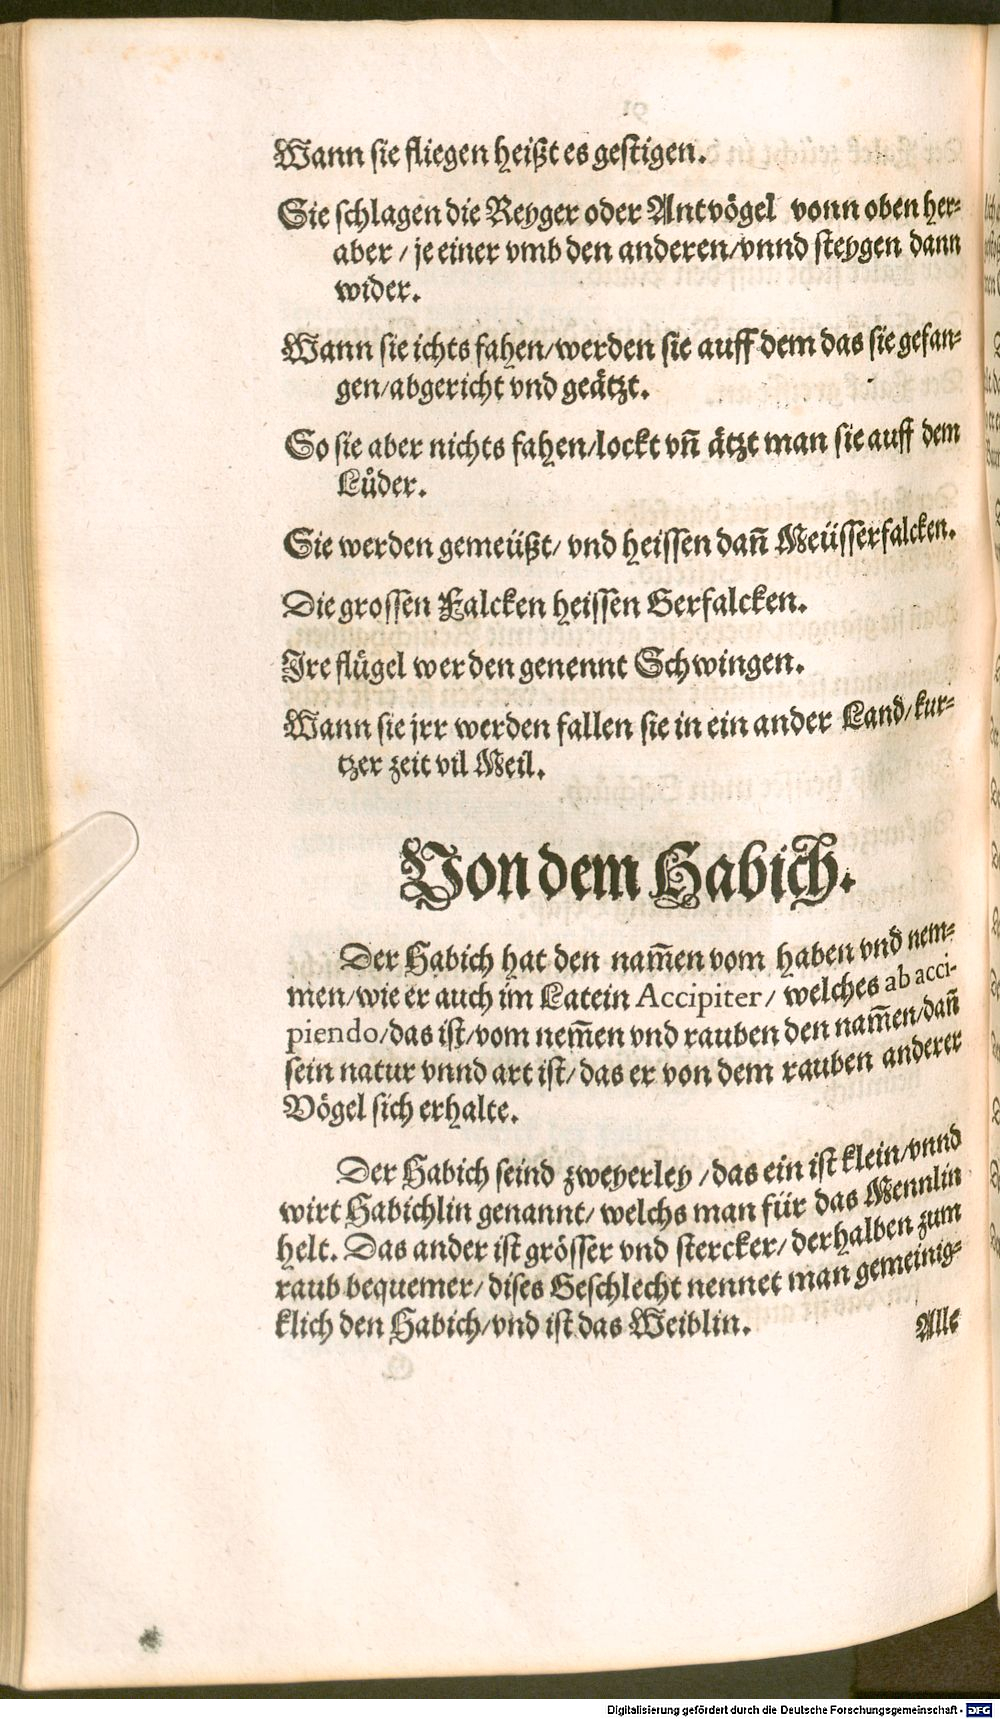 Wann sie fliegen heißt es gestigen.
Sie schlagen die Reyger oder Antvögel vonn oben her-
aber / je einer vmb den anderen/vnnd steygen dann
wider.
Wann sie ichts fahen/werden sie auff dem das sie gefan-
gen/abgericht vnd geätzt.
So sie aber nichts fahen/lockt vñ ätzt man sie auff dem
Lůder.
Sie werden gemeüßt/ vnd heissen dañ Meüsserfalcken.
Die grossen Falcken heissen Gerfalcken.
Ire flügel werden genennt Schwingen.
Wann sie jrr werden fallen sie in ein ander Land/kur-
tzer zeit vil Meil.
Von dem Habich.
Der Habich hat den nam̃en vom haben vnd nem-
men/wie er auch im Latein Accipiter/ welches ab acci-
piendo/das ist/vom nem̃en vnd rauben den nam̃en/dañ
sein natur vnnd art ist/das er von dem rauben anderer
Vögel sich erhalte.
Der Habich seind zweyerley /das ein ist klein/vnnd
wirt Habichlin genannt/ welchs man für das Mennlin
helt. Das ander ist grösser vnd stercker/derhalben zum
raub bequemer/dises Geschlecht nennet man gemeinig-
klich den Habich/vnd ist das Weiblin.
Alle
Digitalisierung gefördert durch die Deutsche Forschungsgemeinschaft - DFG